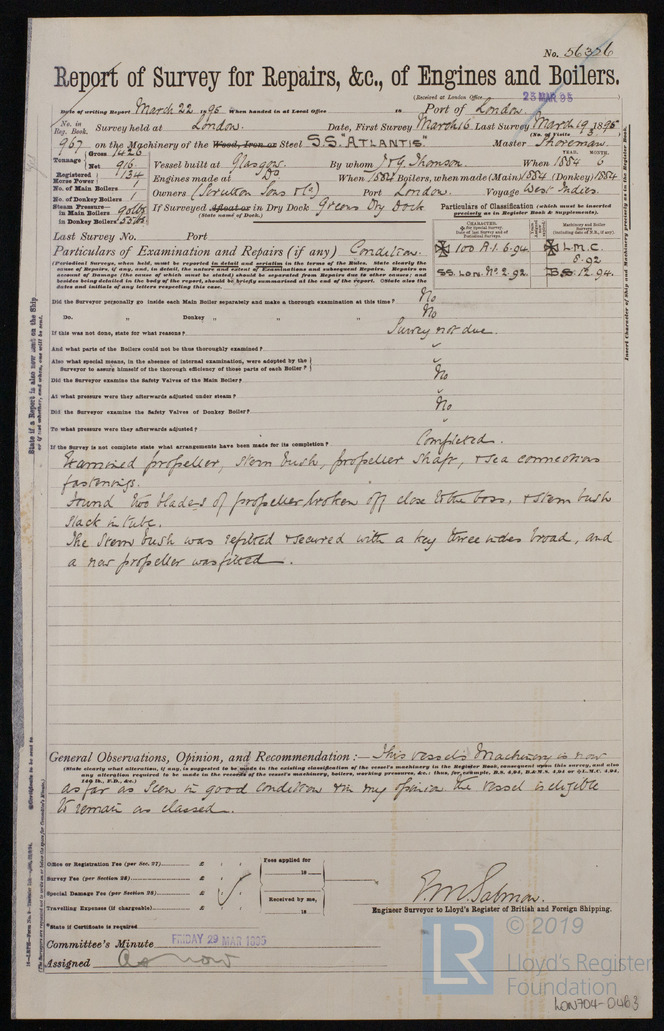 No. 56356
Report of Survey for Repairs, &c., of Engines and Boilers.
(Received at London Office 23 MAR 95
Date of writing Report March 22 1895 When handed in at Local Office 18 Port of London
No. in Reg. Book. Survey held at London. Date, First Survey March 16 Last Survey March 19 1895
(No. of Visits 3
967 on the Machinery of the Wood, Iron or Steel S.S. ATLANTIS. Master
Tonnage Gross 1426
Net 916
Vessel built at Glasgow. By whom J & G Thomson. When 1884 YEAR. MONTH. 5
Registered Horse Power 134
Engines made at Do When 1884 Boilers, when made (Main) 1884 (Donkey) 1884
No. of Main Boilers 1
No. of Donkey Boilers 1
Owners (Scrutton Sons & Co) Port London. Voyage West Indies.
Steam Pressure—
in Main Boilers 90 lbs
in Donkey Boilers 55 lbs
If Surveyed Afloat or in Dry Dock Greens Dry Dock
(State name of Dock.)
Particulars of Classification (which must be inserted precisely as in Register Book & Supplements).
CHARACTER.
Machinery and Boiler Surveys
100 A.1. 6.94
L.M.C. 8.92
S.S. LON. No. 2. 92.
B.S. 12.94.
Last Survey No. Port
Particulars of Examination and Repairs (if any) Condition.
(Periodical Surveys, when held, must be reported in detail and seriatim in the terms of the Rules. State clearly the
cause of Repairs, if any, and, in detail, the nature and extent of Examinations and subsequent Repairs. Repairs on
account of Damage (the cause of which must be stated) should be separated from Repairs due to other causes; and
besides being detailed in the body of the report, should be briefly summarised at the end of the report. State also the
dates and initials of any letters respecting this case.
Did the Surveyor personally go inside each Main Boiler separately and make a thorough examination at this time? No
Do. „ Donkey „ „ „ No
If this was not done, state for what reasons? Survey not due.
And what parts of the Boilers could not be thus thoroughly examined?
Also what special means, in the absence of internal examination, were adopted by the
Surveyor to assure himself of the thorough efficiency of those parts of each Boiler?
Did the Surveyor examine the Safety Valves of the Main Boiler? No
At what pressure were they afterwards adjusted under steam?
Did the Surveyor examine the Safety Valves of Donkey Boiler? No
To what pressure were they afterwards adjusted?
If the Survey is not complete state what arrangements have been made for its completion? Completed.
Examined propeller, stern bush, propeller shaft, & sea connections
fastenings.
Found two blades of propeller broken off close to the boss, & stern bush
slack in tube.
The stern bush was refitted & secured with a key three inches broad, and
a new propeller was fitted.
General Observations, Opinion, and Recommendation:— This vessels Machinery is now
(State clearly what alteration, if any, is suggested to be made in the existing classification of the vessel's machinery in the Register Book, consequent upon this survey, and also
any alteration required to be made in the records of the vessel's machinery, boilers, working pressures, &c.: thus, for example, B.S. 4,94, B.&M.S. 4,94 or L.M.C. 4,94,
140 lb., F.D., &c.)
as far as seen in good condition & in my opinion the vessel is eligible
to remain as classed.
Office or Registration Fee (per Sec. 27) £
Survey Fee (per Section 28) £
Special Damage Fee (per Section 28) £
Travelling Expenses (if chargeable) £
Fees applied for
18
Received by me,
18
*State if Certificate is required
Engineer Surveyor to Lloyd's Register of British and Foreign Shipping.
Committee's Minute FRIDAY 29 MAR 1895
Assigned As now
State if a Report is also now sent on the Ship
or if not whether, and when, one will be sent.
Insert Character of Ship and Machinery precisely as in the Register Book.
© 2019
LR
Lloyd's Register
Foundation
LON704-0463